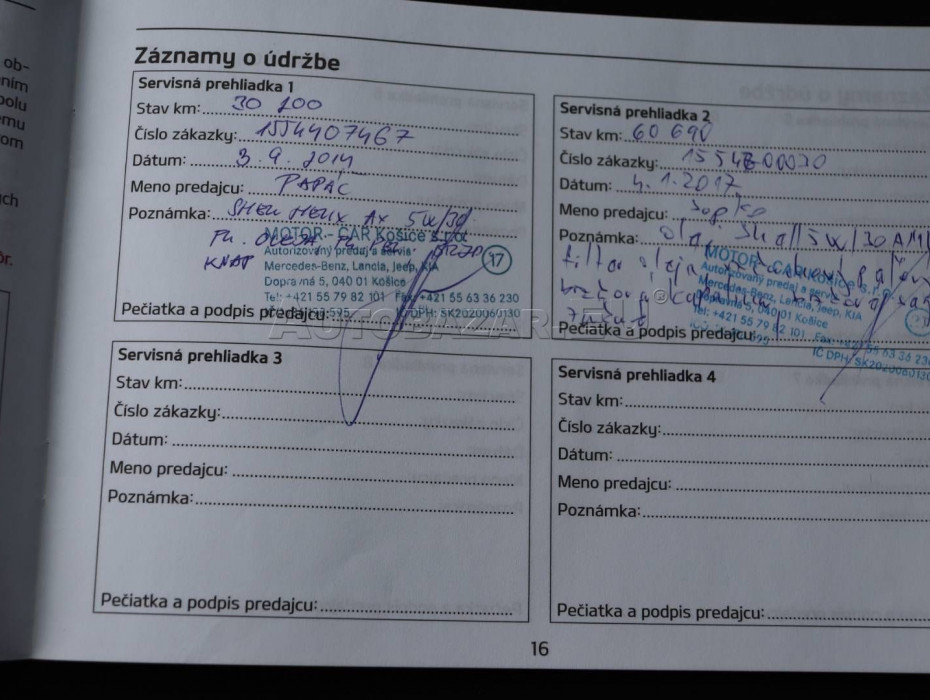 ob-
ním
polu
emu
om
ých
ór.
Záznamy o údržbe
Servisná prehliadka 1
Stav km: 30 200
Číslo zákazky: 1554407467
Dátum: 3.9.2014
Meno predajcu: PAPAC
Poznámka: SHELL HELIX AX 5W/30
MOTOR - CAR Košice s.r.o.
Autorizovaný predaj a servis
Mercedes-Benz, Lancia, Jeep, KIA
Dopravná 5, 040 01 Košice
Tel: +421 55 79 82 101 Fax: +421 55 63 36 230
IČ DPH: SK2020060130
17
Pečiatka a podpis predajcu:
Servisná prehliadka 2
Stav km: 60 690
Číslo zákazky:
Dátum: 4.1.2017
Meno predajcu: Sopko
Poznámka: olej Shell 5W/30
filter oleja
MOTOR - CAR Košice s.r.o.
Autorizovaný predaj a servis
Mercedes-Benz, Lancia, Jeep, KIA
Dopravná 5, 040 01 Košice
Tel: +421 55 79 82 101 Fax: +421 55 63 36 230
IČ DPH: SK2020060130
Pečiatka a podpis predajcu:
AUTOBAZAR.EU
Servisná prehliadka 3
Stav km:
Číslo zákazky:
Dátum:
Meno predajcu:
Poznámka:
Pečiatka a podpis predajcu:
Servisná prehliadka 4
Stav km:
Číslo zákazky:
Dátum:
Meno predajcu:
Poznámka:
Pečiatka a podpis predajcu:
16